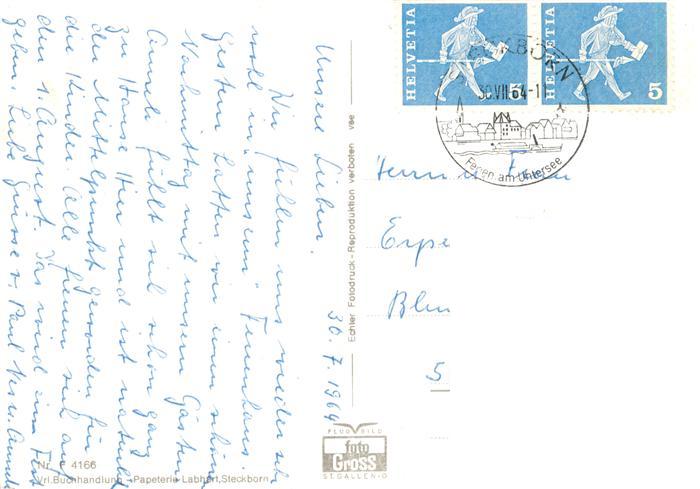 HELVETIA
5
HELVETIA
5
STECKBORN
30.VII.64-11
Ferien am Untersee
Unsere Lieben.
30. 7. 1964
Wir fühlen uns wieder sehr
wohl in "unserm" Ferienhaus.
Gestern hatten wir einen schönen
Nachmittag mit unsern Gästen
Anneli fühlt sich schon ganz
zu Hause hier und ist natürlich
der Mittelpunkt geworden für
die Kinder. Alle freuen sich auf
den 1. August. Das wird ein Fest
geben. Liebe Grüsse v. Paul
Herrn u
Erpe
Blu
5
Echter Fotodruck - Reproduktion verboten
FLUGBILD
foto
Gross
ST.GALLEN-O
Nr. F 4166
Vrl.Buchhandlung - Papeterie Labhart, Steckborn